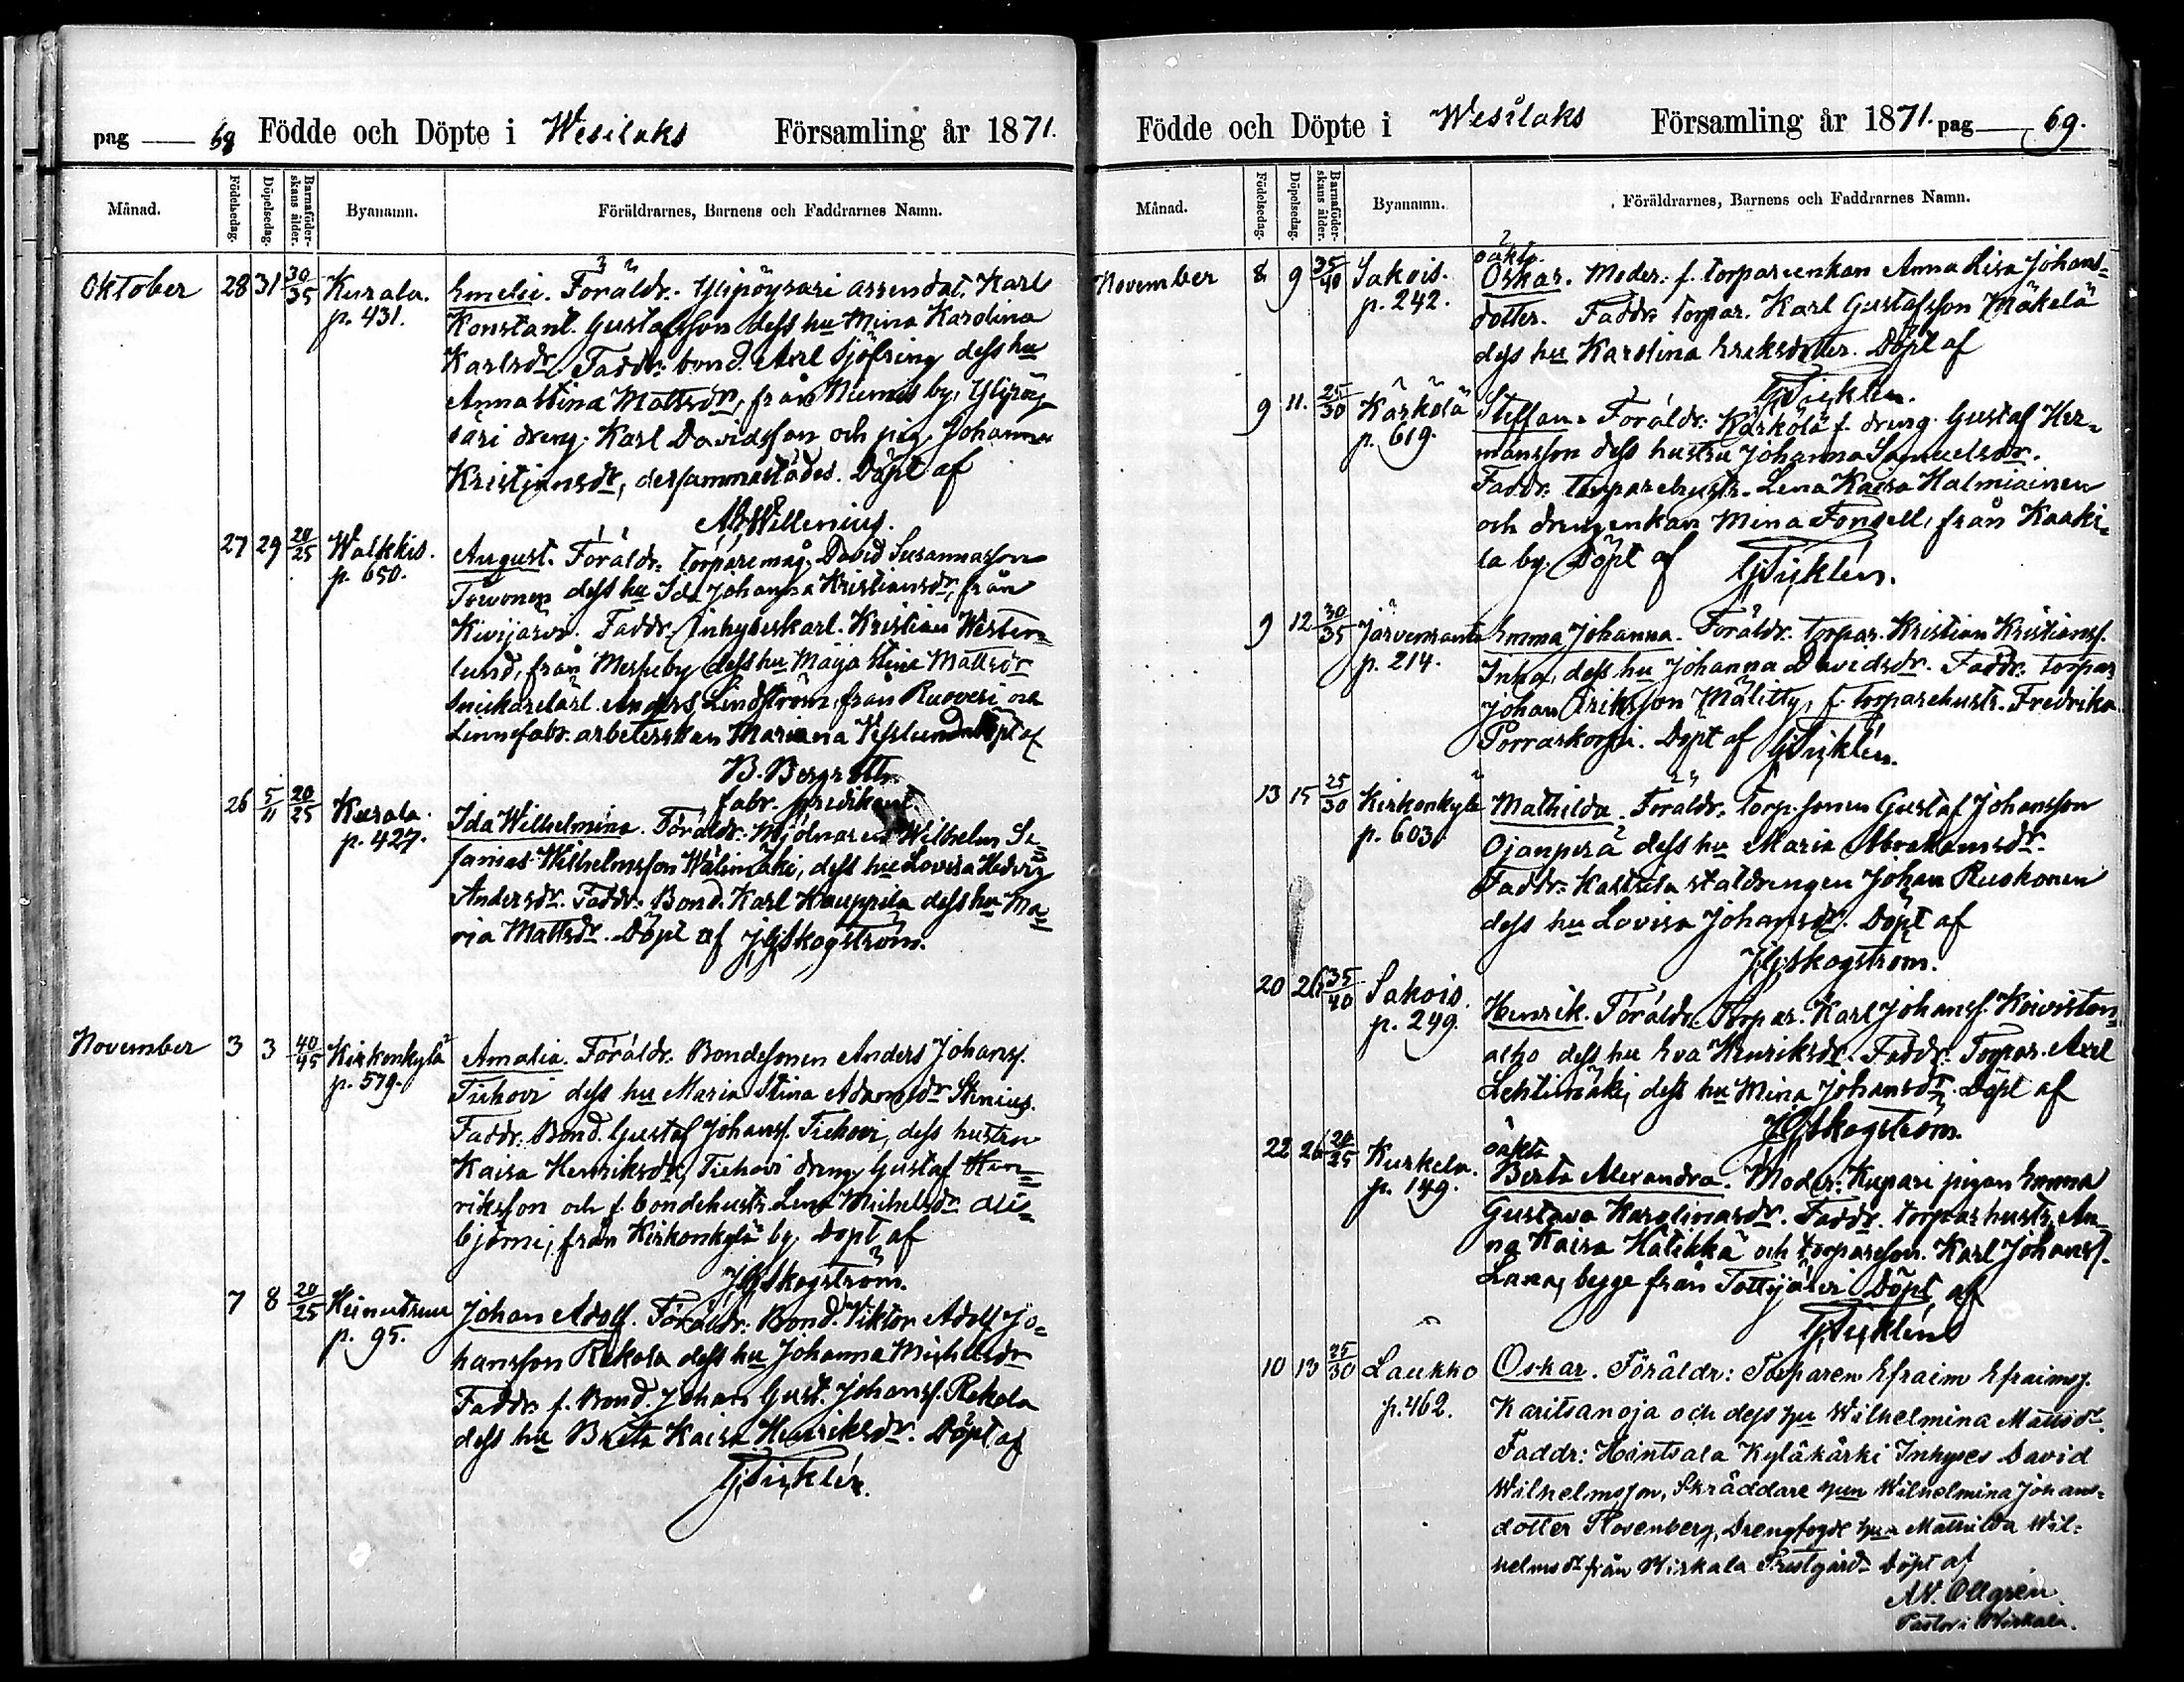 pag 68 Födde och Döpte i Wesilaks Församling år 1871.
Månad. Födelsedag. Döpelsedag. Barnaföderskans ålder. Byanamn. Föräldrarnes, Barnens och Faddrarnes Namn.
Oktober 28 31 30/35 Kurala. p. 431.
Emelie. Föräldr. Ylipöysäri arrendat. Karl
Konstant. Gustafsson dess hu Mina Karolina
Karlsdr. Faddr: bond. Axel Sjöfring dess hu
Anna Stina Mattsdr, från Niemis by, Ylipöy
säri dreng. Karl Davidsson och pig. Johanna
Kristiansdr, dersammastädes. Döpt af
Willenius.
27 29 20/25 Walkkis. p. 650.
August. Föräldr. torparemåg. David Susannasson
Towonen dess hu Ida Johanna Kristiansdr, från
Kivijärvi. Faddr. Inhyseskarl. Kristian Western
lund, från by dess hu Maja Stina Mattsdr
Snickarelärl. Anders Lindström, från Ruoveri och
Linnefabr. arbeterskan Mariana Döpt af
B. Bergroth.
fabr. predikant.
26 5/11 20/25 Kurala. p. 427.
Ida Wilhelmina. Föräldr: Mjölnaren Wilhelm Se=
fanias Wilhelmsson Wälimäki, dess hu Lovisa Hedvig
Andersdr. Faddr. Bond. Karl Kauppila dess hu Ma=
ria Mattsdr. Döpt af J.G. Skogström.
November 3 3 40/45 Kirkonkylä p. 579.
Amalia. Föräldr. Bondesonen Anders Johanss.
Tiehovi dess hu Maria Stina Adamsdr Stenius.
Faddr. Bond. Gustaf Johanss. Tiehovi, dess hustru
Kaisa Henriksdr, Tiehovi dreng Gustaf Hen=
riksson och f. bondehustr. Lena Michelsdr Ali=
björni, från Kirkonkylä by. Döpt af
J.G. Skogström.
7 8 20/25 p. 95.
Johan Adolf. Föräldr: Bond. Viktor Adolf Jo=
hansson Rekola dess hu Johanna Michelsdr
Faddr. f. Bond. Johan Gust. Johanss. Rekola
dess hu Brita Kaisa Henriksdr. Döpt af
G. Ticklén.
Födde och Döpte i Wesilaks Församling år 1871. pag 69.
Månad. Födelsedag. Döpelsedag. Barnaföderskans ålder. Byanamn. Föräldrarnes, Barnens och Faddrarnes Namn.
November 8 9 35/40 Sakois. p. 242.
oäkta.
Oskar. Moder: f. torpareenkan Anna Lisa Johans=
dotter. Faddr. torpar. Karl Gustafsson Mäkelä
dess hu Karolina Eriksdotter. Döpt af
G. Ticklén.
9 11. 25/30 Karkola p. 619.
Steffan. Föräldr: Kärkölä f. dreng Gustaf Her=
mansson dess hustru Johanna Samuelsdr.
Faddr. torparehustr. Lena Kaisa Halmiainen
och drengenkan Mina Fonsell, från Kaaki=
la by. Döpt af G. Ticklén.
9 12 30/35 Järvenranta p. 214.
Emma Johanna. Föräldr. torpar. Kristian Kristianss.
Inha, dess hu Johanna Davidsdr. Faddr: torpar
Johan Eriksson Mälitty, f. torparehustr. Fredrika
Porraskorpi. Döpt af G. Ticklén.
13 15 25/30 Kirkonkylä p. 603.
Mathilda. Föräldr. torp. sonen Gustaf Johansson
Ojanperä dess hu Maria Abrahamsdr.
Faddr. Kaltsila staldrengen Johan Ruokonen
dess hu Lovisa Johansdr. Döpt af
J.G. Skogström.
20 26 35/40 Sakois. p. 249.
Henrik. Föräldr. Torpar. Karl Johanss. Koiviston=
alho dess hu Eva Henriksdr. Faddr. Torpar. Axel
Lehtimäki, dess hu Mina Johansdr. Döpt af
J.G. Skogström.
22 26 20/25 Kurkela. p. 149.
oäkta
Berta Alexandra. Moder: Kupari pigan Emma
Gustava Karolinasdr. Faddr. torparhustr. An=
na Kaisa Hälikkä och torpareson. Karl Johanss.
Lana, begge från Tottijärvi Döpt af
G. Ticklén
10 13 25/30 Laukko p. 462.
Oskar. Föräldr: Torparen Efraim Efraimss.
Karitsanoja och dess hu Wilhelmina Mattsdr.
Faddr: Hintsala Kyläkärki Inhyses David
Wilhelmsson, Skräddare hun Wilhelmina Johans=
dotter Rosenberg, Drengfogde hun Mathilda Wil=
helmsdr från Wirkala Prestgård. Döpt af
A.W. Ollgrén.
Pastor i Wirkala.